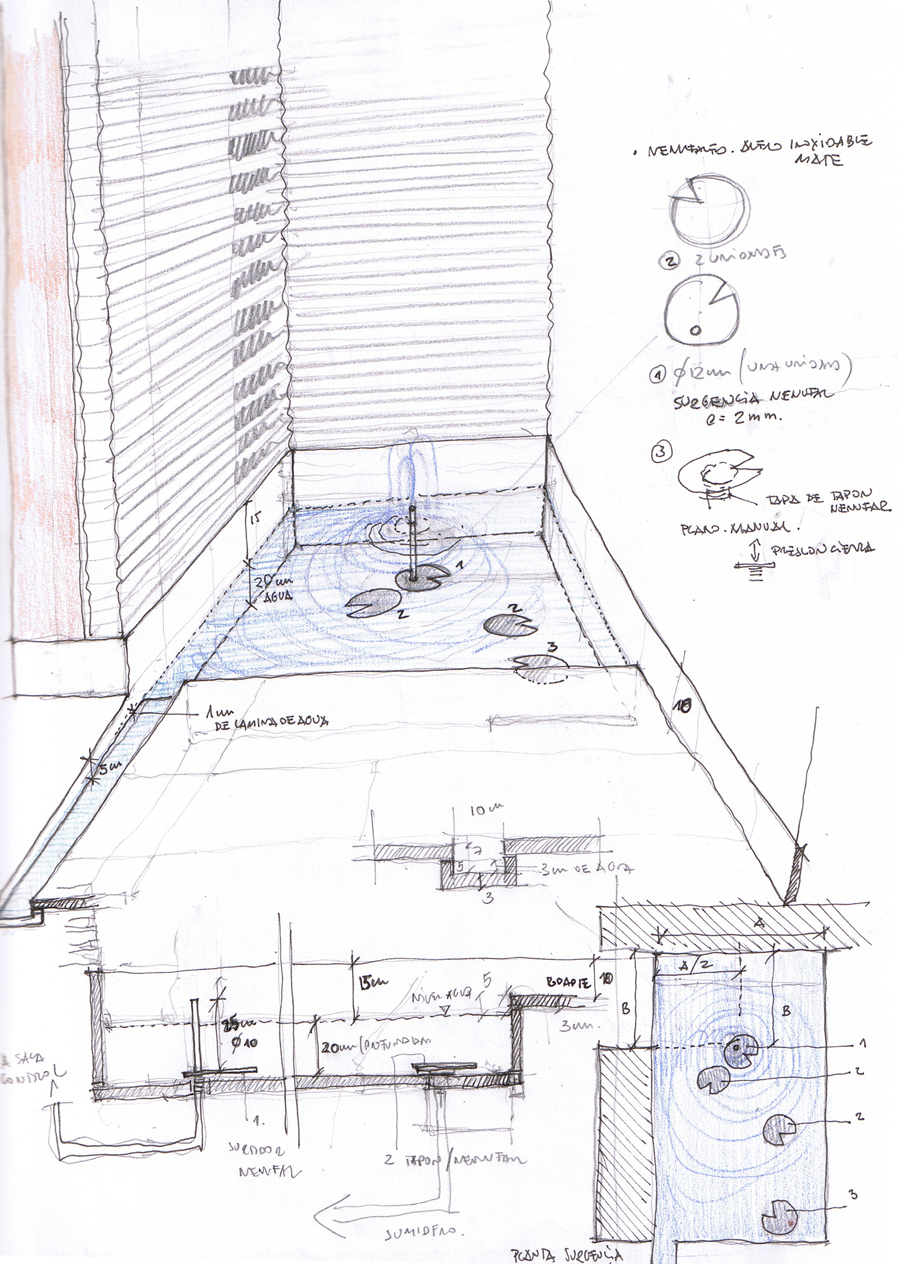 • NENUFARO. ACERO INOXIDABLE
MATE
2 2 UNIDADES
1 Ø12cm (UNA UNIDAD)
SURGENCIA NENUFAR
e = 2mm.
3
TAPA DE TAPON
NENUFAR.
PLANO. MANUAL.
PRESION CIERRA
15
20cm
AGUA
1
2
2
3
1cm
DE LAMINA DE AGUA
5cm
10
10cm
7
5
3cm DE AGUA
3
A
A/2
B
B
15cm
NIVEL AGUA
5
BORDE
10
3cm.
25cm
Ø10
20cm PROFUNDIDAD
A SALA
CONTROL
1.
SURTIDOR
NENUFAR
2 TAPON/NENUFAR
SUMIDERO.
1
2
2
3
PLANTA SURGENCIA